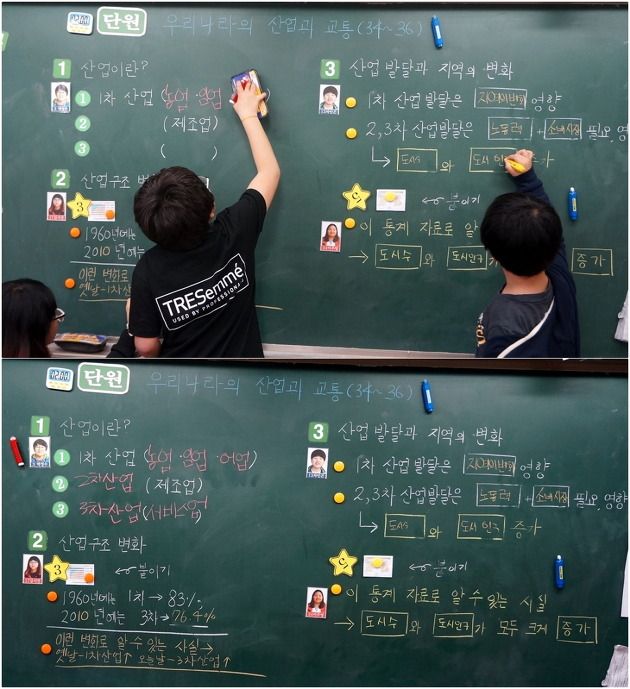 단원 우리나라의 산업과 교통(34~36)
1 산업이란?
1 1차 산업 (농업·임업
2 (제조업)
3 ( )
2 산업구조 변화
3
1960년에는
2010 년에는
이런 변화로
옛날-1차산
TRESemmé
USED BY PROFESSIONALS
3 산업 발달과 지역의 변화
1차 산업발달은 영향
2,3차 산업발달은 노동력 + 소비시장 필요, 영
→ 도시수 와 도시 인
← 붙이기
이 통계 자료로 알
→ 도시수 와 도시인구 증가
단원 우리나라의 산업과 교통(34~36)
1 산업이란?
1 1차 산업 (농업·임업·어업)
2 2차산업 (제조업)
3 3차산업(서비스업)
2 산업구조 변화
3 ← 붙이기
1960년에는 1차 → 83%
2010 년에는 3차 → 76.4%
이런 변화로 알 수 있는 사실→
옛날-1차산업↑ 오늘날-3차산업↑
3 산업 발달과 지역의 변화
1차 산업발달은 영향
2,3차 산업발달은 노동력 + 소비시장 필요, 영향
→ 도시수 와 도시 인구 증가
← 붙이기
이 통계 자료로 알 수 있는 사실
→ 도시수 와 도시인구 가 모두 크게 증가